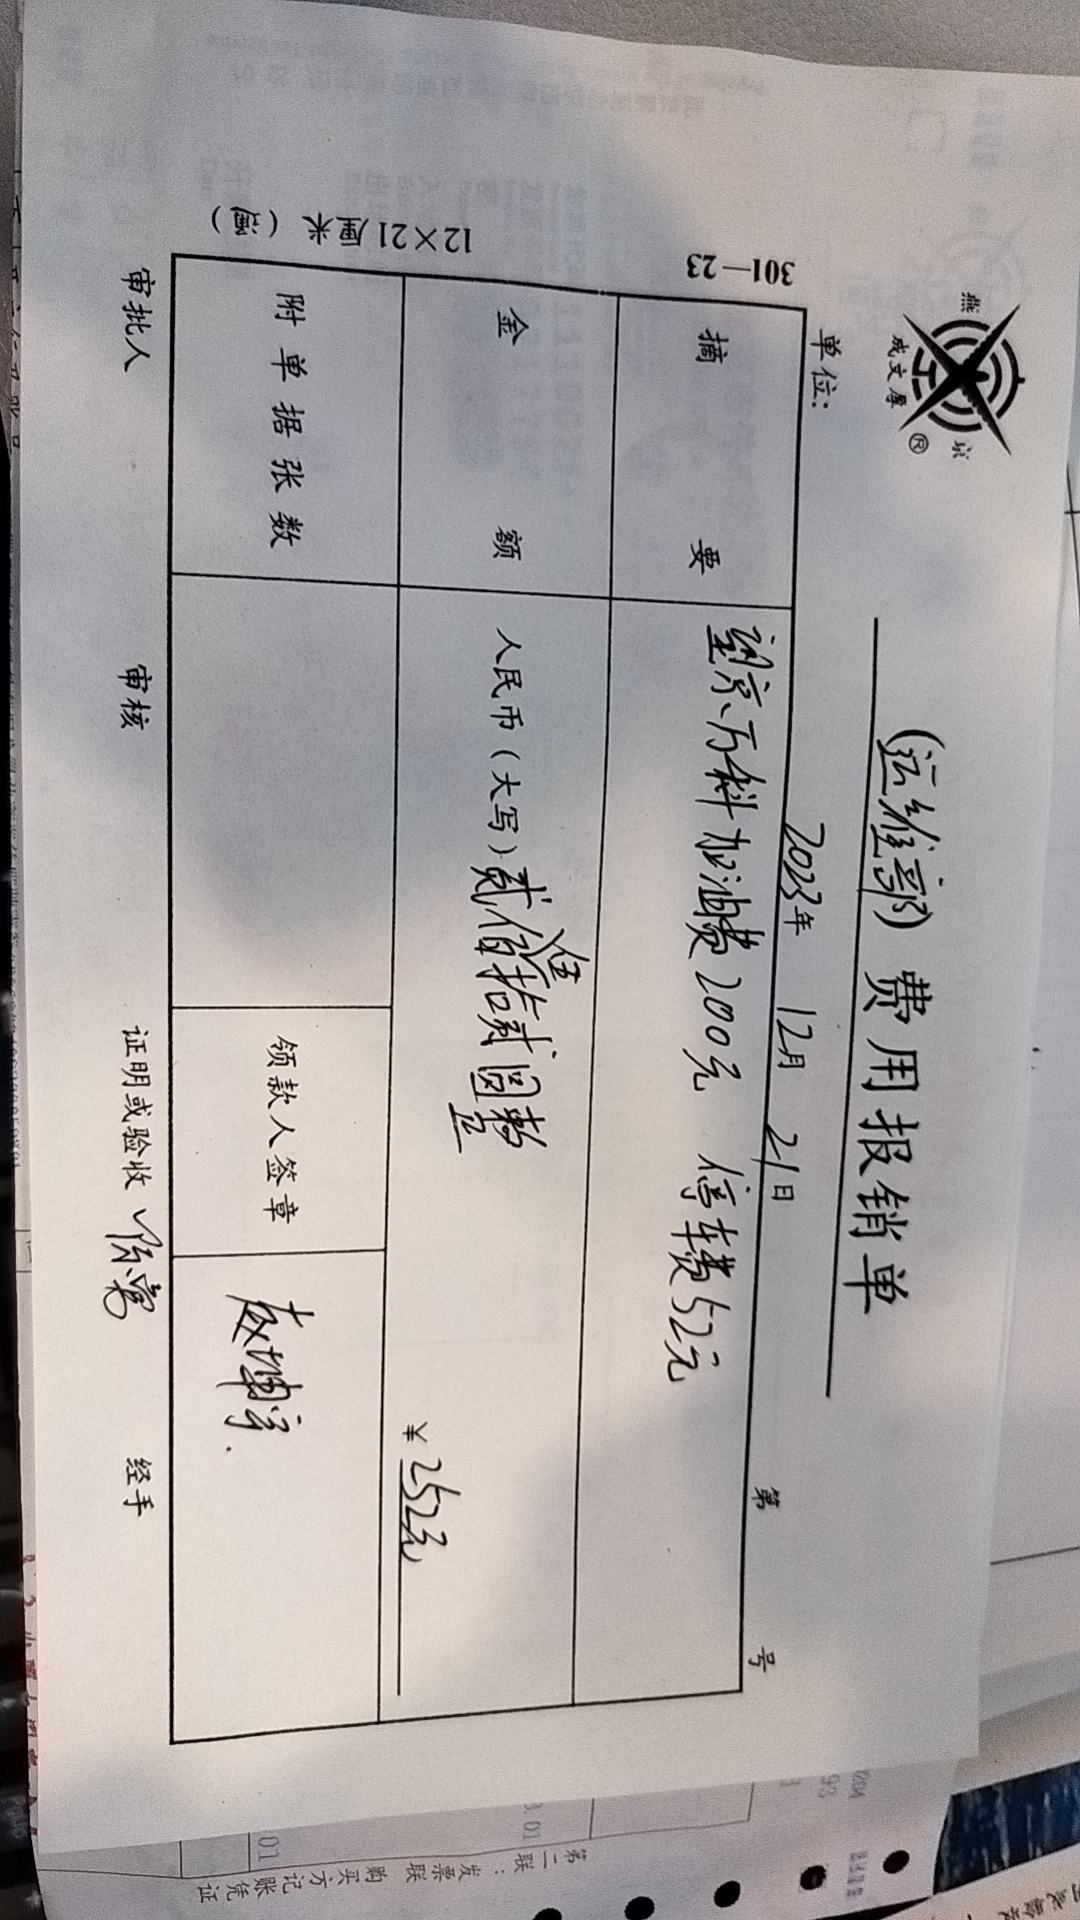 燕京
成文厚®
(运维部) 费用报销单
2023年 12月 21日
单位: 第 号
301—23
摘要 到京万科加油费200元 停车费52元
金额 人民币(大写) 贰佰伍拾贰圆整
¥ 252元
附单据张数 领款人签章
12×21厘米
审批人 审核 证明或验收 经手
第二联:发票联 购买方记账凭证